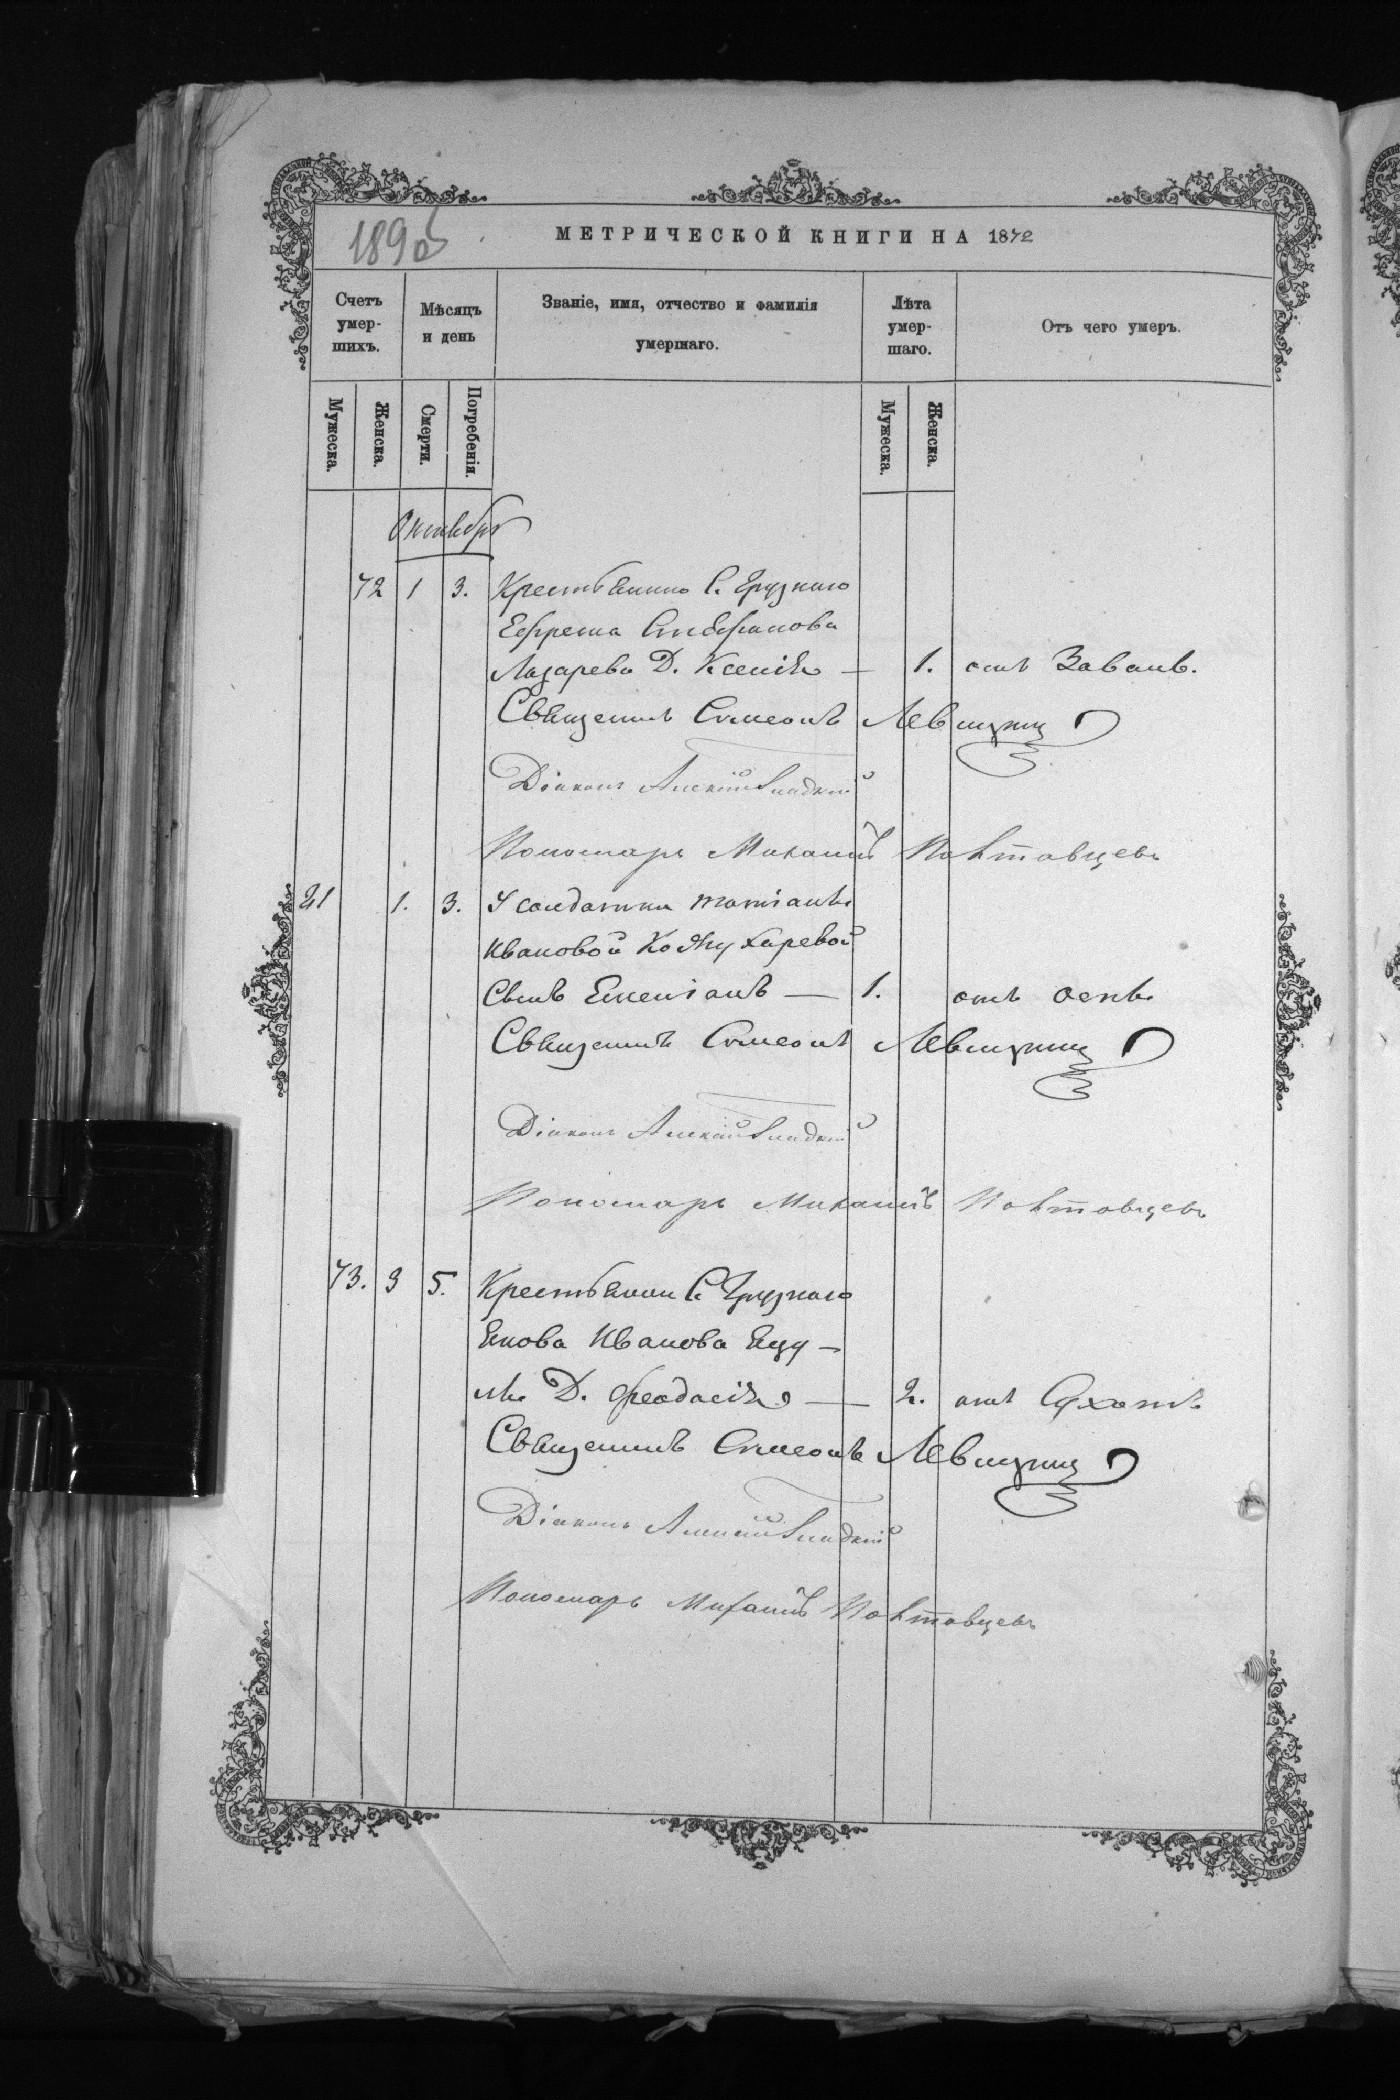 189об
МЕТРИЧЕСКОЙ КНИГИ НА 1872
Счетъ умер- шихъ.
Мѣсяцъ и день
Званіе, имя, отчество и фамилія умершаго.
Лѣта умер- шаго.
Отъ чего умеръ.
Мужеска. Женска. Смерти. Погребенія. Мужеска. Женска.
Октябрь
72 1 3. Крестьянина С. Грузкаго
Ефрема Стефанова
Лазарева Д. Ксенія — 1. отъ
Священникъ Симеонъ Левицкий
Діаконъ Алексій
Пономарь Михаилъ Полтавцевъ
21 1. 3. У солдатки Татіаны
Ивановой Кожухаревой
Сынъ — 1. отъ оспы
Священникъ Симеонъ Левицкий
Діаконъ Алексій
Пономарь Михаилъ Полтавцевъ
73. 3 5. Крестьянина С. Грузкаго
Якова Иванова
Д. Феодосія — 2. отъ Сухотъ
Священникъ Симеонъ Левицкий
Діаконъ Алексій
Пономарь Михаилъ Полтавцевъ